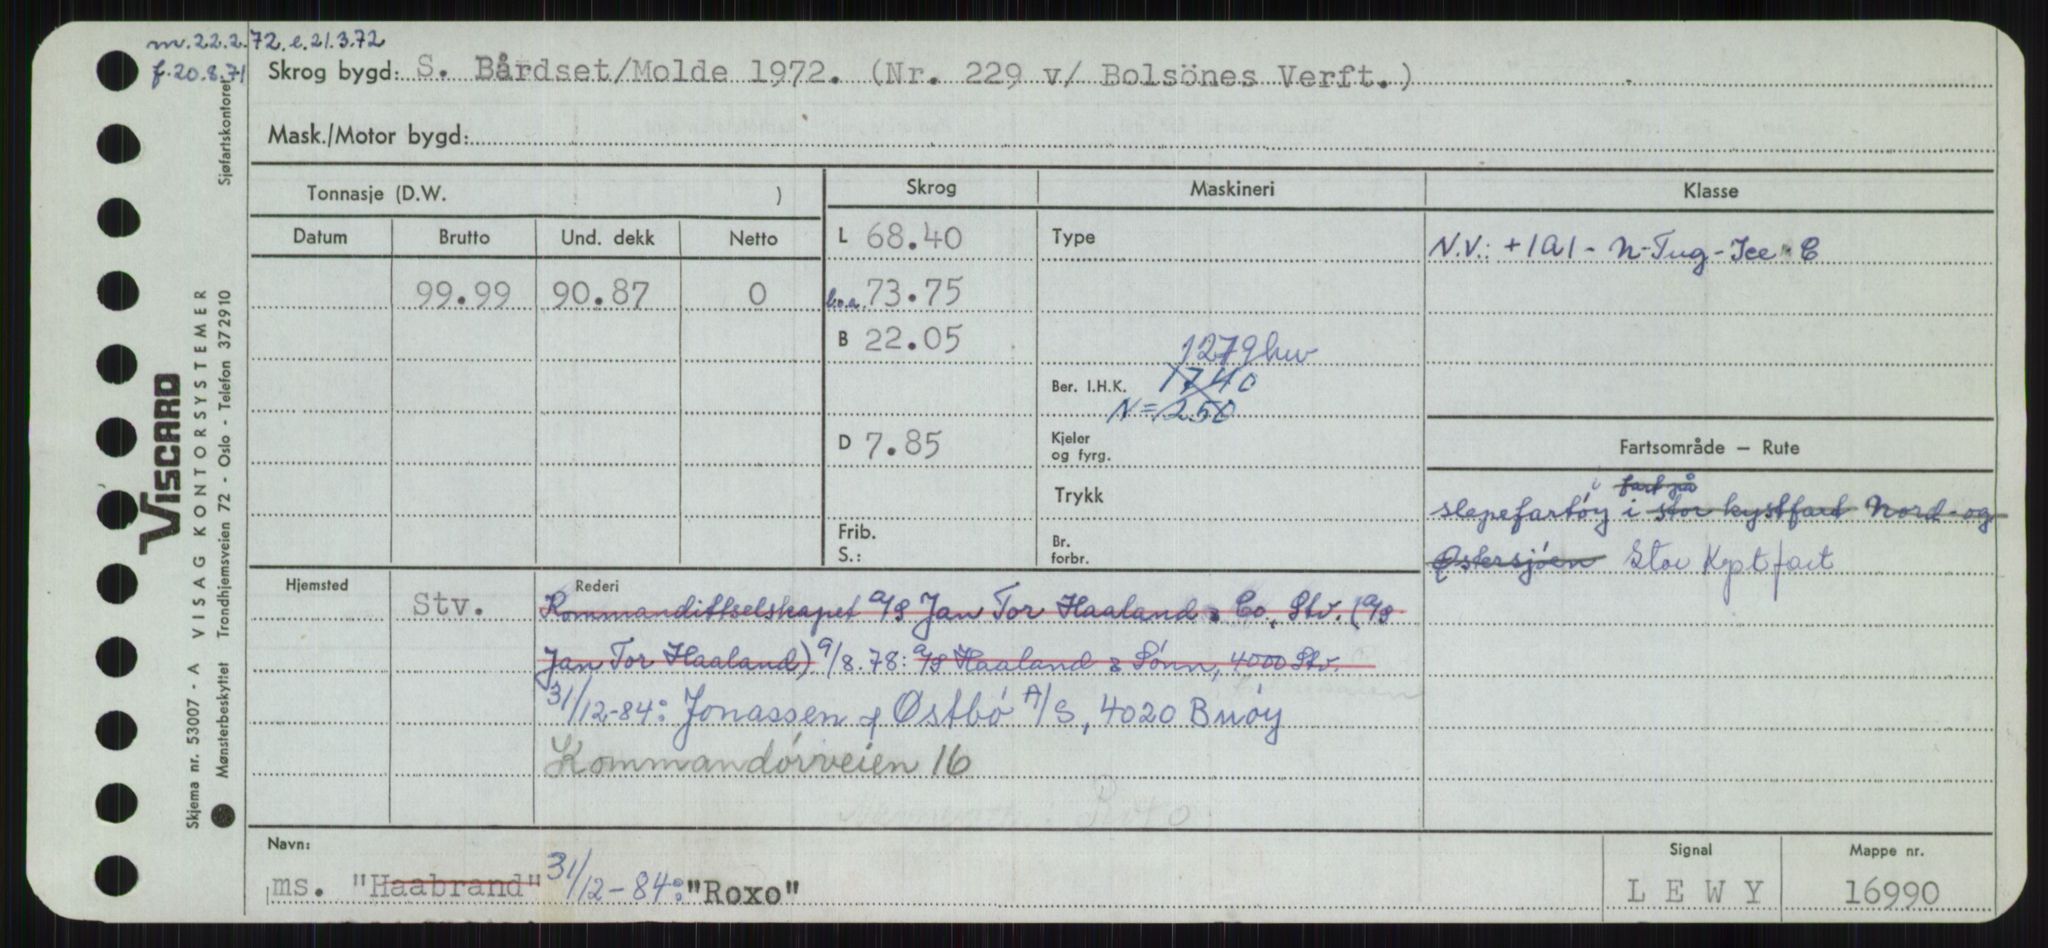 m. 22.2.72. e. 21.3.72
f. 20.8.71
Skrog bygd: S. Bårdset/Molde 1972. (Nr. 229 v/ Bolsönes Verft.)
Mask./Motor bygd:
Tonnasje (D.W. )
Skrog
Maskineri
Klasse
Datum Brutto Und. dekk Netto
99.99 90.87 0
L 68.40
b.o.a. 73.75
B 22.05
D 7.85
Frib.
S.:
Type
1279 kw
Ber. I.H.K. 1740
N = 250
Kjeler
og fyrg.
Trykk
Br.
forbr.
N.V.: +1A1 - N-Tug-Ice C
Fartsområde — Rute
fart på
slepefartøy i stor kystfart Nord- og
Østersjøen Stor Kystfart
Hjemsted
Stv.
Rederi
Kommandittselskapet A/S Jan Tor Haaland & Co, Stv. (A/S
Jan Tor Haaland) 9/8.78: A/S Haaland & Sønn, 4000 Stv.
31/12-84: Jonassen & Østbø A/S, 4020 Buøy
Kommandørveien 16
Navn:
ms. "Haabrand" 31/12-84: "Roxo"
Signal
LEWY
Mappe nr.
16990
Sjøfartskontoret
VISCARD
Skjema nr. 53007 - A VISAG KONTORSYSTEMER
Mønsterbeskyttet Trondhjemsveien 72 - Oslo - Telefon 372910